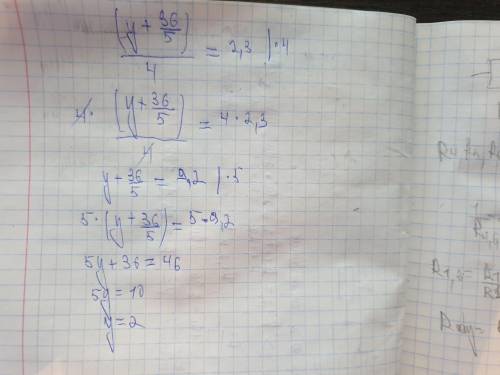 (y + 36/5)/4 = 2,3 | · 4
4 · (y + 36/5)/4 = 4 · 2,3
y + 36/5 = 9,2 | · 5
5 · (y + 36/5) = 5 · 9,2
5y + 36 = 46
5y = 10
y = 2